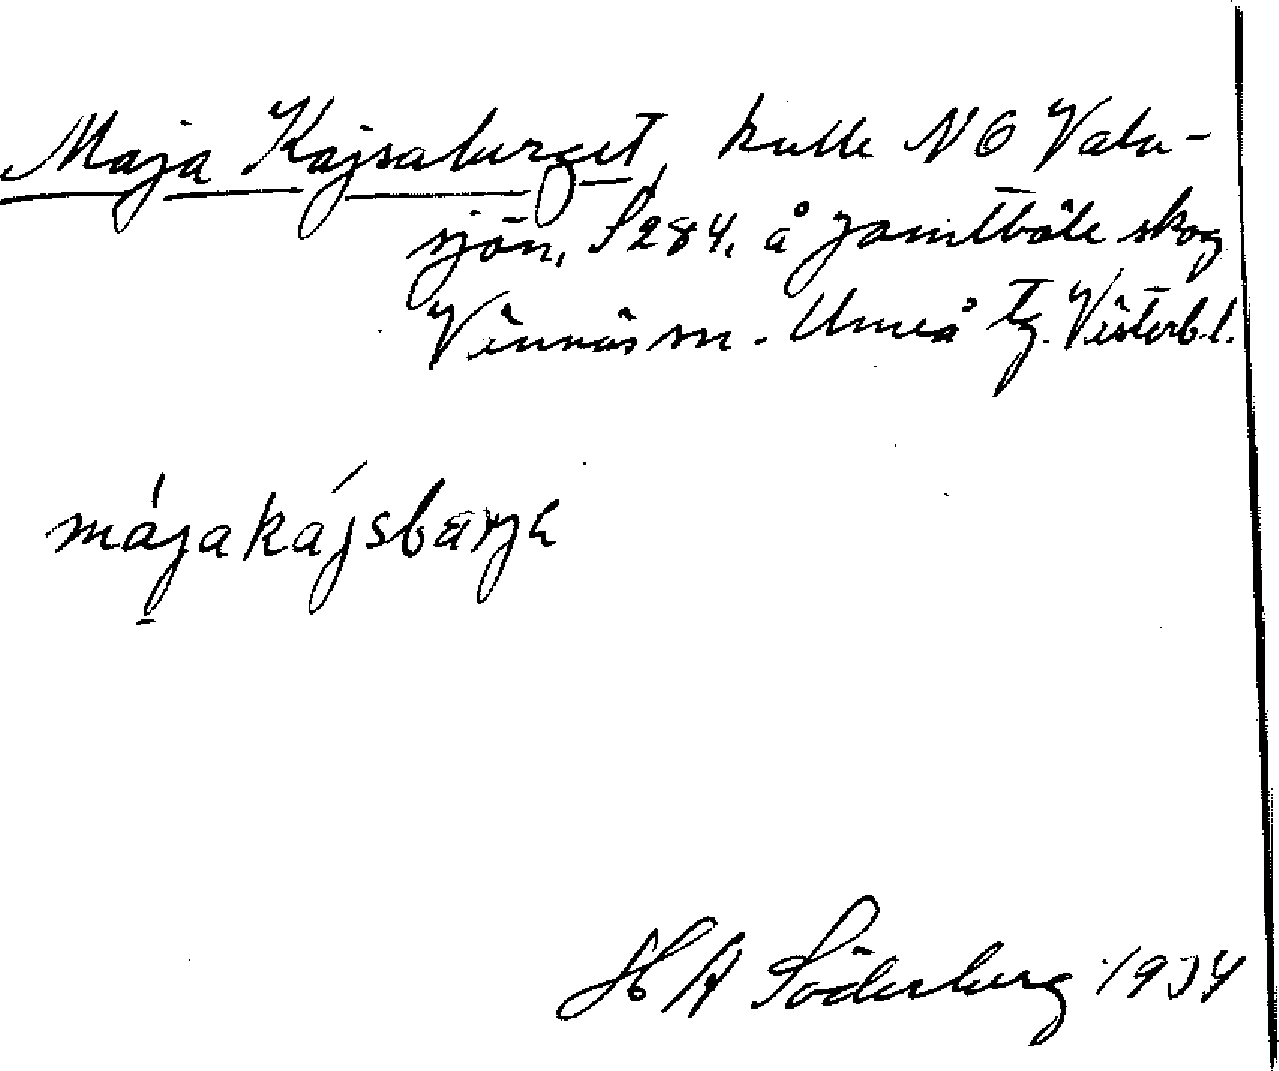 Maja Kajsaberget, kulle NO Valu-
sjön, S284, å Jämtböle skog
Vännäs sn. Umeå tg. Västerb.l.
májakájsbärjə
H A Söderberg 1934